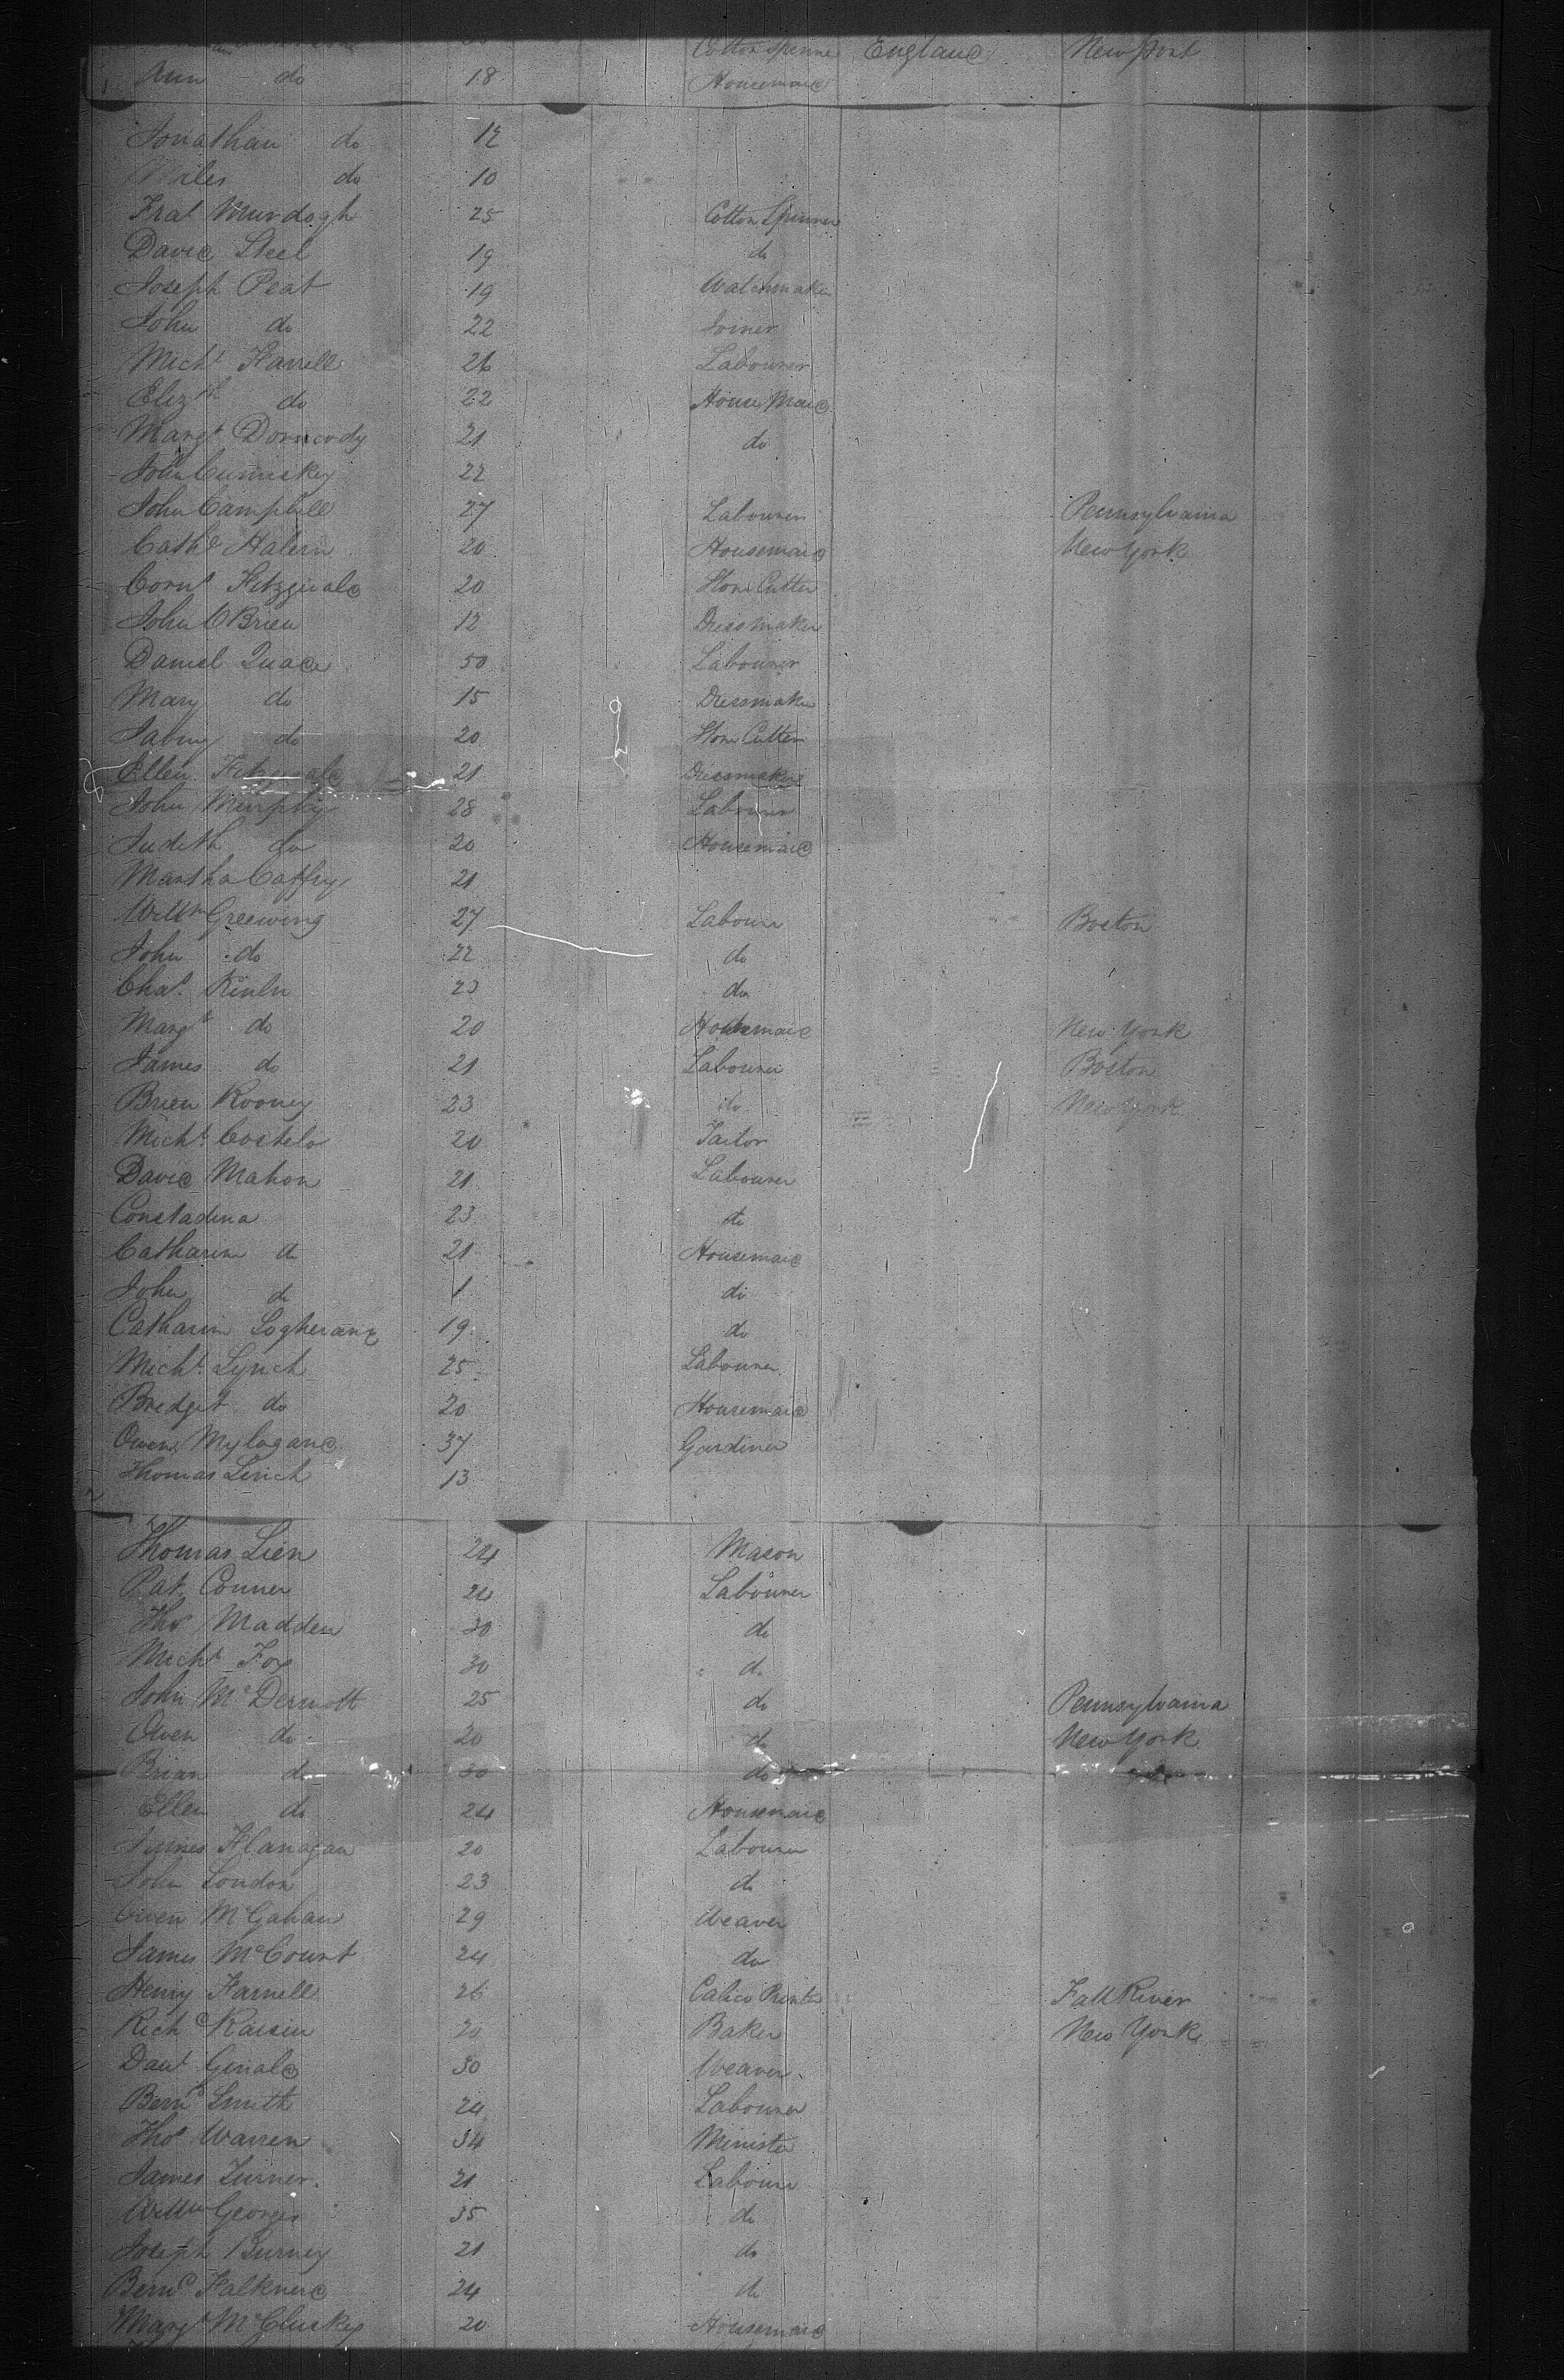 Cotton Spinne England Newport
Ann do 18 Housemaid
Jonathan do 12
Miles do 10
Frat Murdogh 25 Cotton Spinner
David Steel 19 do
Joseph Peat 19 Watchmaker
John do 22 Joiner
Michl Farrell 26 Labourer
Elizth do 22 House Maid
Margt Dormody 21 do
John Cumiskey 22
John Campbell 27 Labourer Pennsylvania
Cathe Halern 20 Housemaid New York
Cornl Fitzgerald 20 Stone Cutter
John OBrien 12 Dressmaker
Daniel Quade 50 Labourer
Mary do 15 Dressmaker
do 20 Stone Cutter
Ellen Fitzgerald 21 Dressmaker
John Murphy 28 Labourer
Judith do 20 Housemaid
Martha Caffry 21
Willm Greewing 27 Labourer Boston
John do 22 do
Chas. 23 do
Margt do 20 Housemaid New York
James do 21 Labourer Boston
Brien Rooney 23 do New York
Michl Costelo 20 Tailor
David Mahon 21 Labourer
Constadina 23 do
Catharine do 21 Housemaid
John do 1 do
Catharine 19 do
Michl. Lynch 25 Labourer
Bredget do 20 Housemaid
Owen 37 Gardiner
Thomas Linch 13
Thomas Lien 24 Mason
Pat. Conner 24 Labourer
Thos Madden 30 do
Michl Fox 30 do
John McDermott 25 do Pennsylvania
Owen do 20 do New York
Brian do 30 do
Ellen do 24 Housemaid
James Flanagan 20 Labourer
John London 23 do
Owen McGahan 29 Weaver
James McCourt 24 do
Henry Farnell 26 Calico Printer Fall River
Richd Raisin 20 Baker New York
Danl Gerald 30 Weaver
Bernd Smith 24 Labourer
Thos Warren 34 Minister
James Turner. 21 Labourer
Willm Georges 35 do
Joseph Burney 21 do
Bernd Falkner 24 do
Margt McCluskey 20 Housemaid